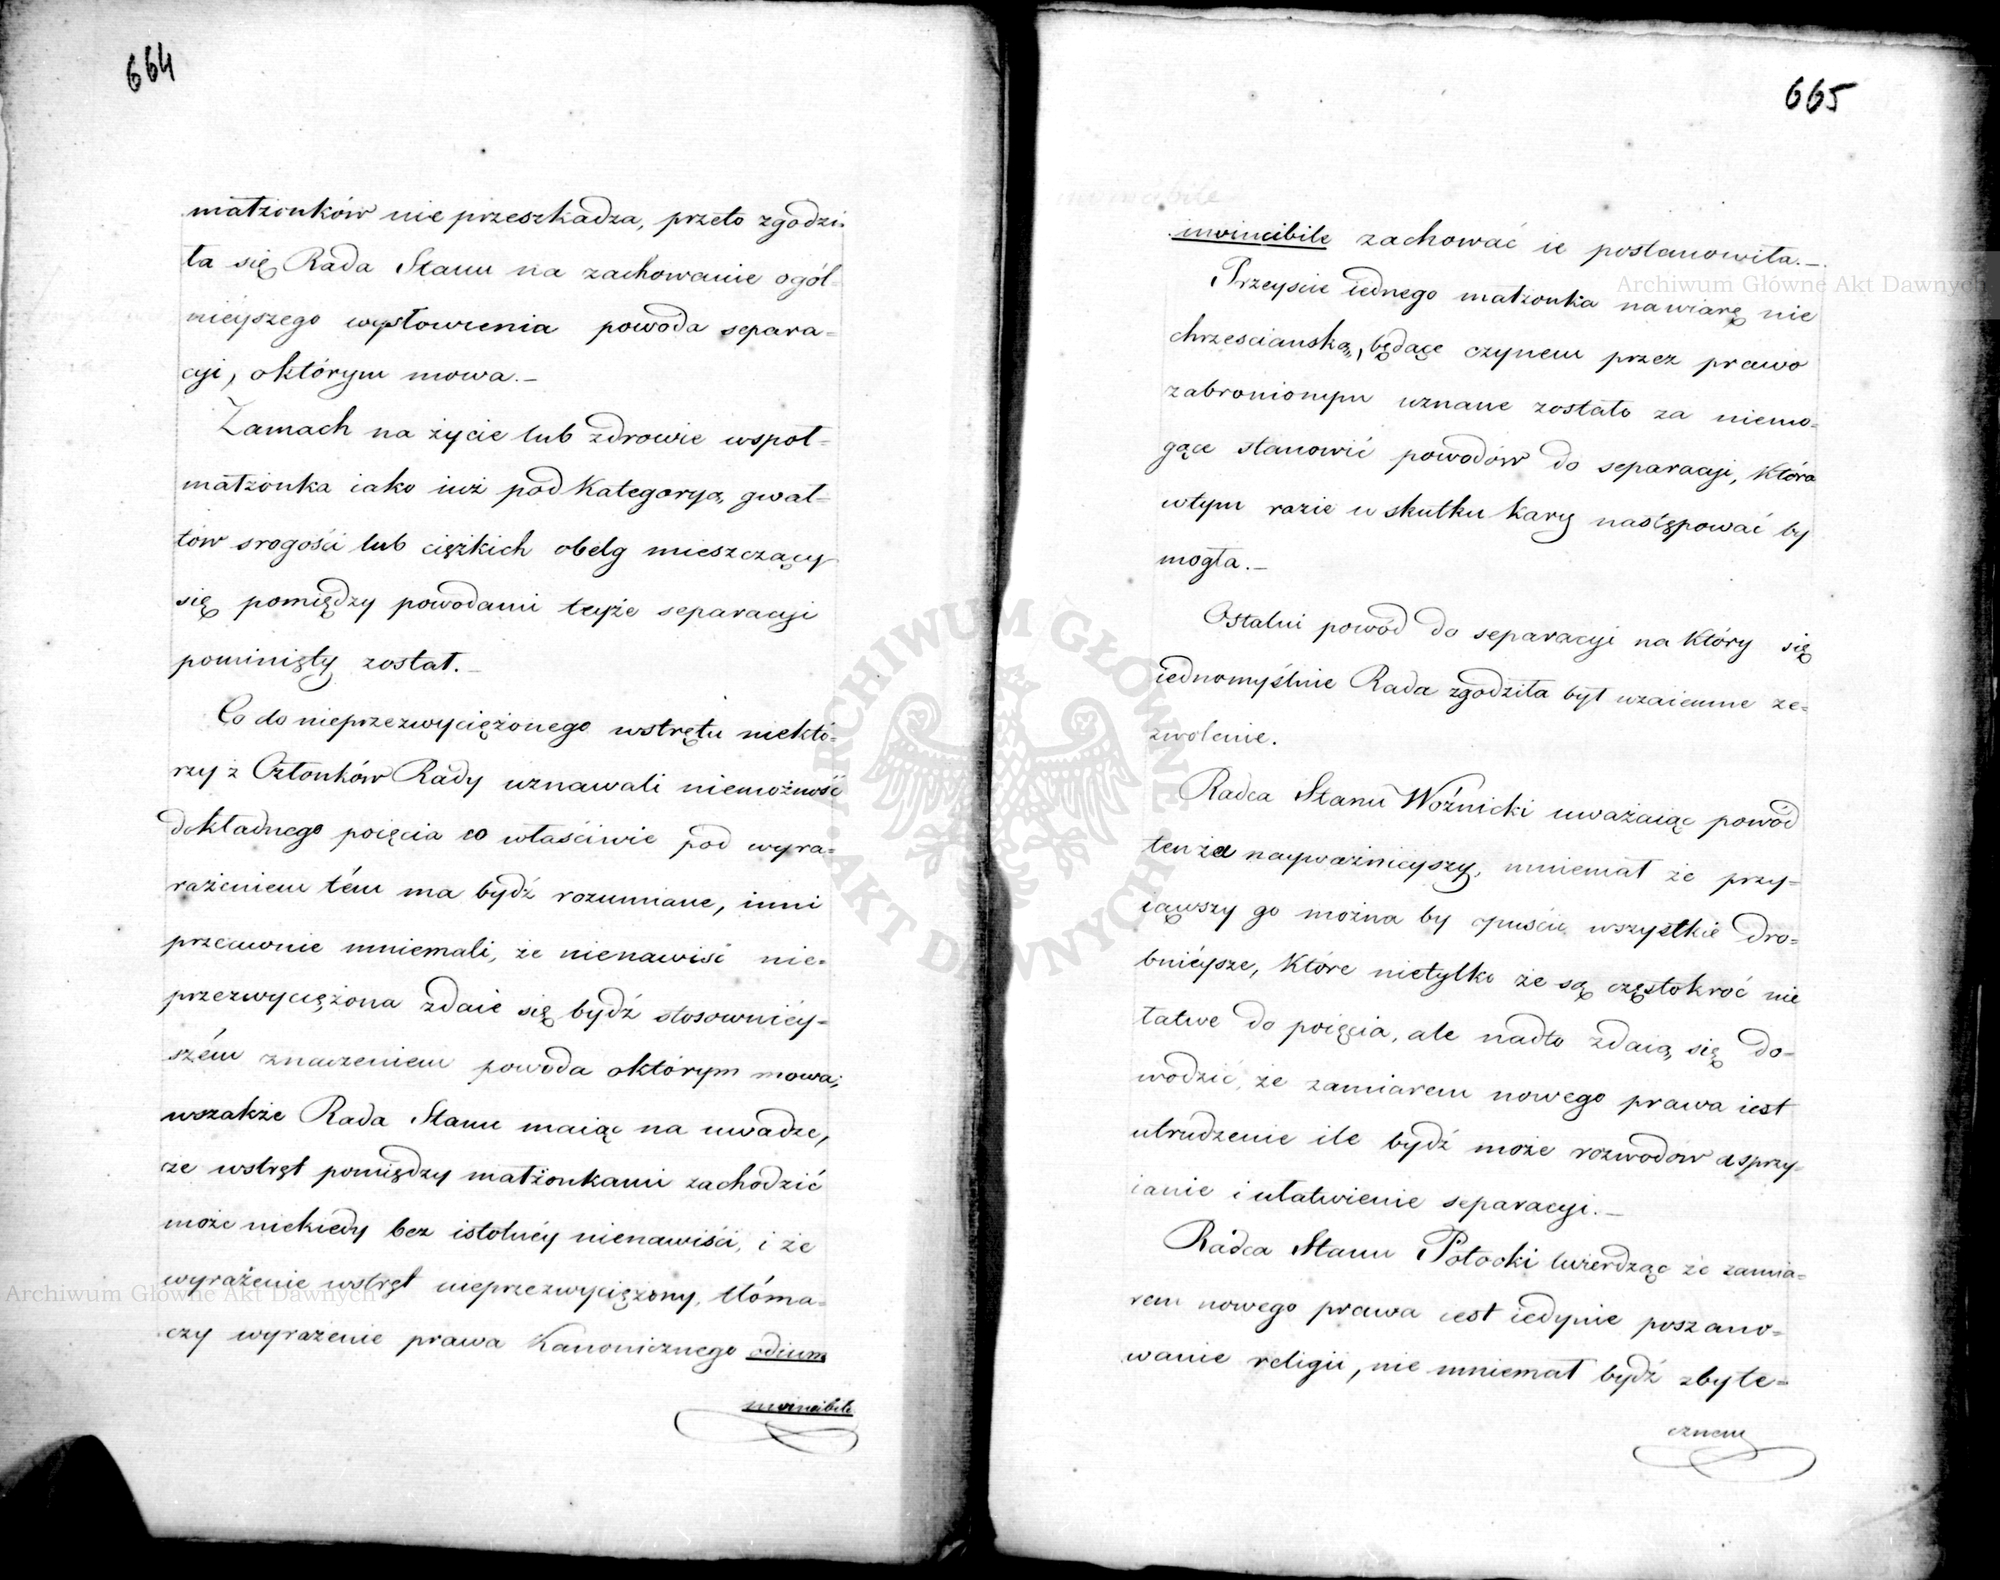 664
małżonków nie przeszkadza, przeto zgodzi-
ła się Rada Stanu na zachowanie ogól-
niejszego wysłowienia powodu separa-
cyi, o którym mowa.—
Zamach na życie lub zdrowie współ-
małżonka iako iuż pod kategoryą gwał-
tów srogości lub ciężkich obelg mieszczący
się pomiędzy powodami teyże separacyi
pominięty został.—
Co do nieprzezwyciężonego wstrętu niektó-
rzy z Członków Rady uznawali niemożność
dokładnego poięcia co właściwie pod wyra-
rażeniem tém ma bydź rozumiane, inni
przeciwnie mniemali, że nienawiść nie-
przezwyciężona zdaie się bydź stosowniéy-
szém znaczeniem powodu o którym mowa;
wszakże Rada Stanu maiąc na uwadze,
że wstręt pomiędzy małżonkami zachodzić
może niekiedy bez istotnéy nienawiści, i że
wyrażenie wstręt nieprzezwyciężony, tłóma-
czy wyrażenie prawa Kanonicznego odium
invincibile
665
invincibile zachować ie postanowiła.—
Przeyście iednego małżonka na wiarę nie
chrzesciańską, będące czynem przez prawo
zabronionym uznane zostało za niemo-
gące stanowić powodów do separacyi, która
w tym razie w skutku kary następować by
mogła.—
Ostatni powód do separacyi na który się
iednomyślnie Rada zgodziła był wzaiemne ze-
zwolenie.
Radca Stanu Woźnicki uważaiąc powód
ten za nayważnieyszy, mniemał że przy-
iąwszy go można by opuścić wszystkie dro-
bniéysze, które nietylko że są częstokroć nie
łatwe do poięcia, ale nadto zdaią się do-
wodzić, że zamiarem nowego prawa iest
utrudzenie ile bydź może rozwodów a sprzy-
ianie i ułatwienie separacyi.—
Radca Stanu Potocki twierdząc że zamia-
rem nowego prawa iest iedynie poszano-
wanie religii, nie mniemał bydź zbyte-
cznem
Archiwum Główne Akt Dawnych
Archiwum Główne Akt Dawnych
ARCHIWUM GŁÓWNE AKT DAWNYCH